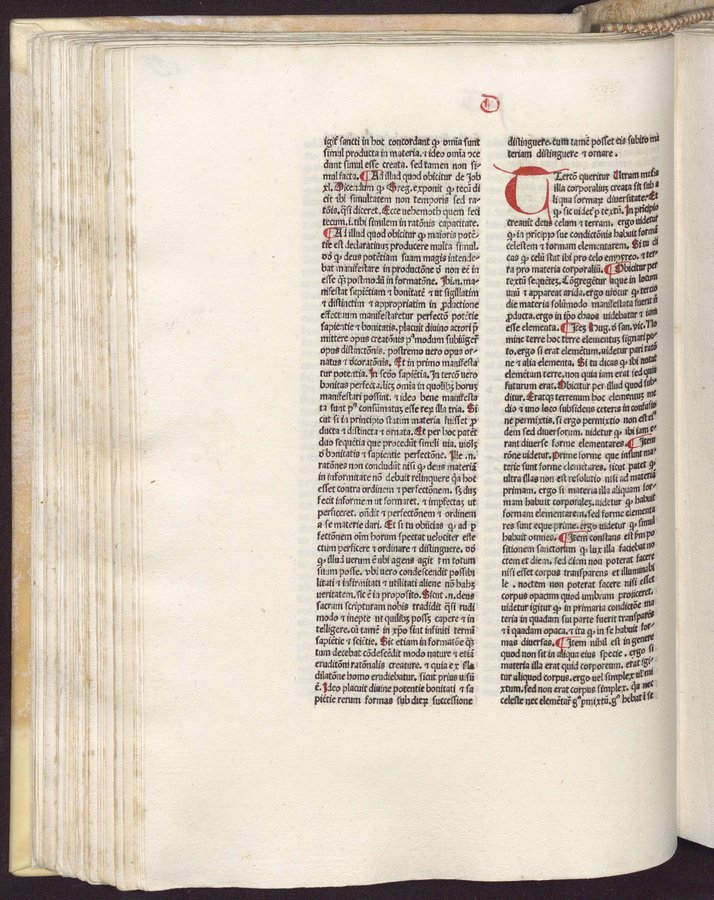 D
igit̃ sancti in hoc concordant ꝙ omia sunt
simul producta in materia. ⁊ ideo om̃ia ẜe
cundũ esse creata. sed tamen non si-
mul facta. ¶ Ad illud quod obicitur de Job
xl. Dicendum ꝙ Greg. exponit ꝙ tecũ di
cit ibi simultatem non temporis sed ra-
tõis. q̃si diceret. Ecce vehemoth quem feci
tecum. i. tibi similem in ratõnis capacitate.
¶ Ad illud quod obicitur ꝙ maioris potẽ-
tie est declaratiuũ producere multa simul.
ꝙ deus potẽtiam suam magis intende-
bat manifestare in productõne ꝙ non eẽ in
esse q̃ꝫ postmodũ in formatõne. Ibi .n. ma-
nifestat sapiẽtiam ⁊ bonitatẽ ⁊ ut sigillatim
⁊ distinctim ⁊ appropriatim in ꝓductione
effectuum manifestaretur perfectõ potẽtie
sapientie ⁊ bonitatis. placuit diuino actori ꝓ
mittere opus creatõnis
opus distinctõnis. postremo vero opus or-
natus ⁊ decoratõnis. Et in primo manifesta
tur potentia. In scđo sapiẽtia. In tercõ vero
bonitas perfecta. licꝫ om̃ia in quolibꝫ horum
manifestari possint. ⁊ ideo bene manifesta
ta sunt esse rerũ illa tria. Si
cut si in principio statim materia fuisset ꝓ
ducta ⁊ distincta ⁊ ornata. Et per hoc patet
duo sequẽtia que procedũt simili via.
ꝺ bonitatis ⁊ sapientie perfectõne. Ille .n.
ratõnes non concludũt nisi ꝙ deus materiã
in informitate nõ debuit relinquere q̃a hoc
esset contra ordinem ⁊ perfectõnem. sꝫ
fecit informem ut formaret. ⁊ imperfectã ut
perficeret. ⁊ perfectõnem ⁊ ordinem
a se materie dari. Et si tu obicias ꝙ ad ꝑ
fectõnem oĩm horum spectat velociter effe-
ctum perficere ⁊ ordinare ⁊ distinguere.
ꝙ illud verum ẽ ubi agens agit totum
suum posse. vbi vero condescendit possibi
litati ⁊ infirmitati ⁊ utilitati aliene nõ habꝫ
veritatem. sic ẽ in proposito. Sicut .n. deus
sacram scripturam nobis tradidit q̃si rudi
modo ⁊ inepte ut quilibꝫ possꝫ capere ⁊ in
telligere. cũ tamẽ in xp̃o sint infiniti termĩ
sapiẽtie ⁊ sciẽtie. Sic etiam in formatõe
tum decebat cõdescẽdit modo nature ⁊ etiã
eruditõni ratõnalis creature. ⁊ quia ex
dilatõne homo erudiebatur. sicut prius uisũ
ẽ. Ideo placuit diuine potentie bonitati ⁊ sa
piẽtie rerum formas sub dieꝝ successione
distinguere. cum tamẽ posset eis subito ma
teriam distinguere ⁊ ornare.
Tercõ queritur Utrum materia
illa corporaliũ creata sit sub a
liqua formaꝝ diuersitate. Et
ꝙ sic uideꝩ ꝑ textũ. In principio
creauit deus celum ⁊ terram. ergo uidetur
ꝙ in principio sue condictõnis habuit formã
celestem ⁊ formam elementarem. Si tu di
cas ꝙ celũ stat ibi pro celo empyreo. ⁊ ter-
ra pro materia corporaliũ. ¶ Obicitur per
textũ sequẽteꝫ. Cõgregẽtur aque in locum
unũ ⁊ appareat arida. ergo uidetur ꝙ tercio
die materia solũmodo manifestata fuerit nõ
ꝓducta. ergo in ipõ chaos uidebatur ⁊ iam
esse elementa. ¶ Iteꝫ Hug. ꝺ san. vic. No
mine terre hoc terre elementuꝫ signari pu-
to. ergo si erat elemẽtum. uidetur pari ratõ
ne ⁊ alia elementa. Si tu dicas ꝙ ibi notat
elemẽtum terre. non quia iam erat sed quia
futurum erat. Obicitur per illud quod sub-
ditur. Eratqꝫ terrenum hoc elementuꝫ me
dio ⁊ uno loco subsidens ceteris in confusio
ne permixtis. si ergo permixtio non est eius
dem sed diuersorum. videtur ꝙ ibi iam e-
rant diuerse forme elementares. ¶ Item
rõne uidetur. Prime forme que insunt ma-
terie sunt forme elemẽtares. sicut patet ꝙ
ultra illas non est resolutio nisi ad materiã
primam. ergo si materia illa aliquam for-
mam habuit corporaleꝫ. uidetur ꝙ habuit
formam elementarem. sed forme elementa
res sunt eque prime. ergo uidetur ꝙ simul
habuit omnes. ¶ Item constans est im̃po
sitionem sanctorum ꝙ lux illa faciebat no
ctem et diem. sed diem non poterat facere
nisi esset corpus transparens et illuminabi
le. noctem non poterat facere nisi esset
corpus opacum quod umbram proiiceret.
uidetur igitur ꝙ in primaria condictõe ma
teria in quadam sui parte fuerit transparẽs
⁊ ĩ quadam opaca. ⁊ ita ꝙ in se habuit for-
mas diuersas. ¶ Item nihil est in genere
quod non sit in aliqua eius specie. ergo si
materia illa erat quid corporeum. erat igi-
tur aliquod corpus. ergo uel simplex uel mi
xtum. sed non erat corpus simplex. q̃a nec
celeste nec elemẽtar̃ gͦ ꝑmixtũ. gͦ hebat ĩ se